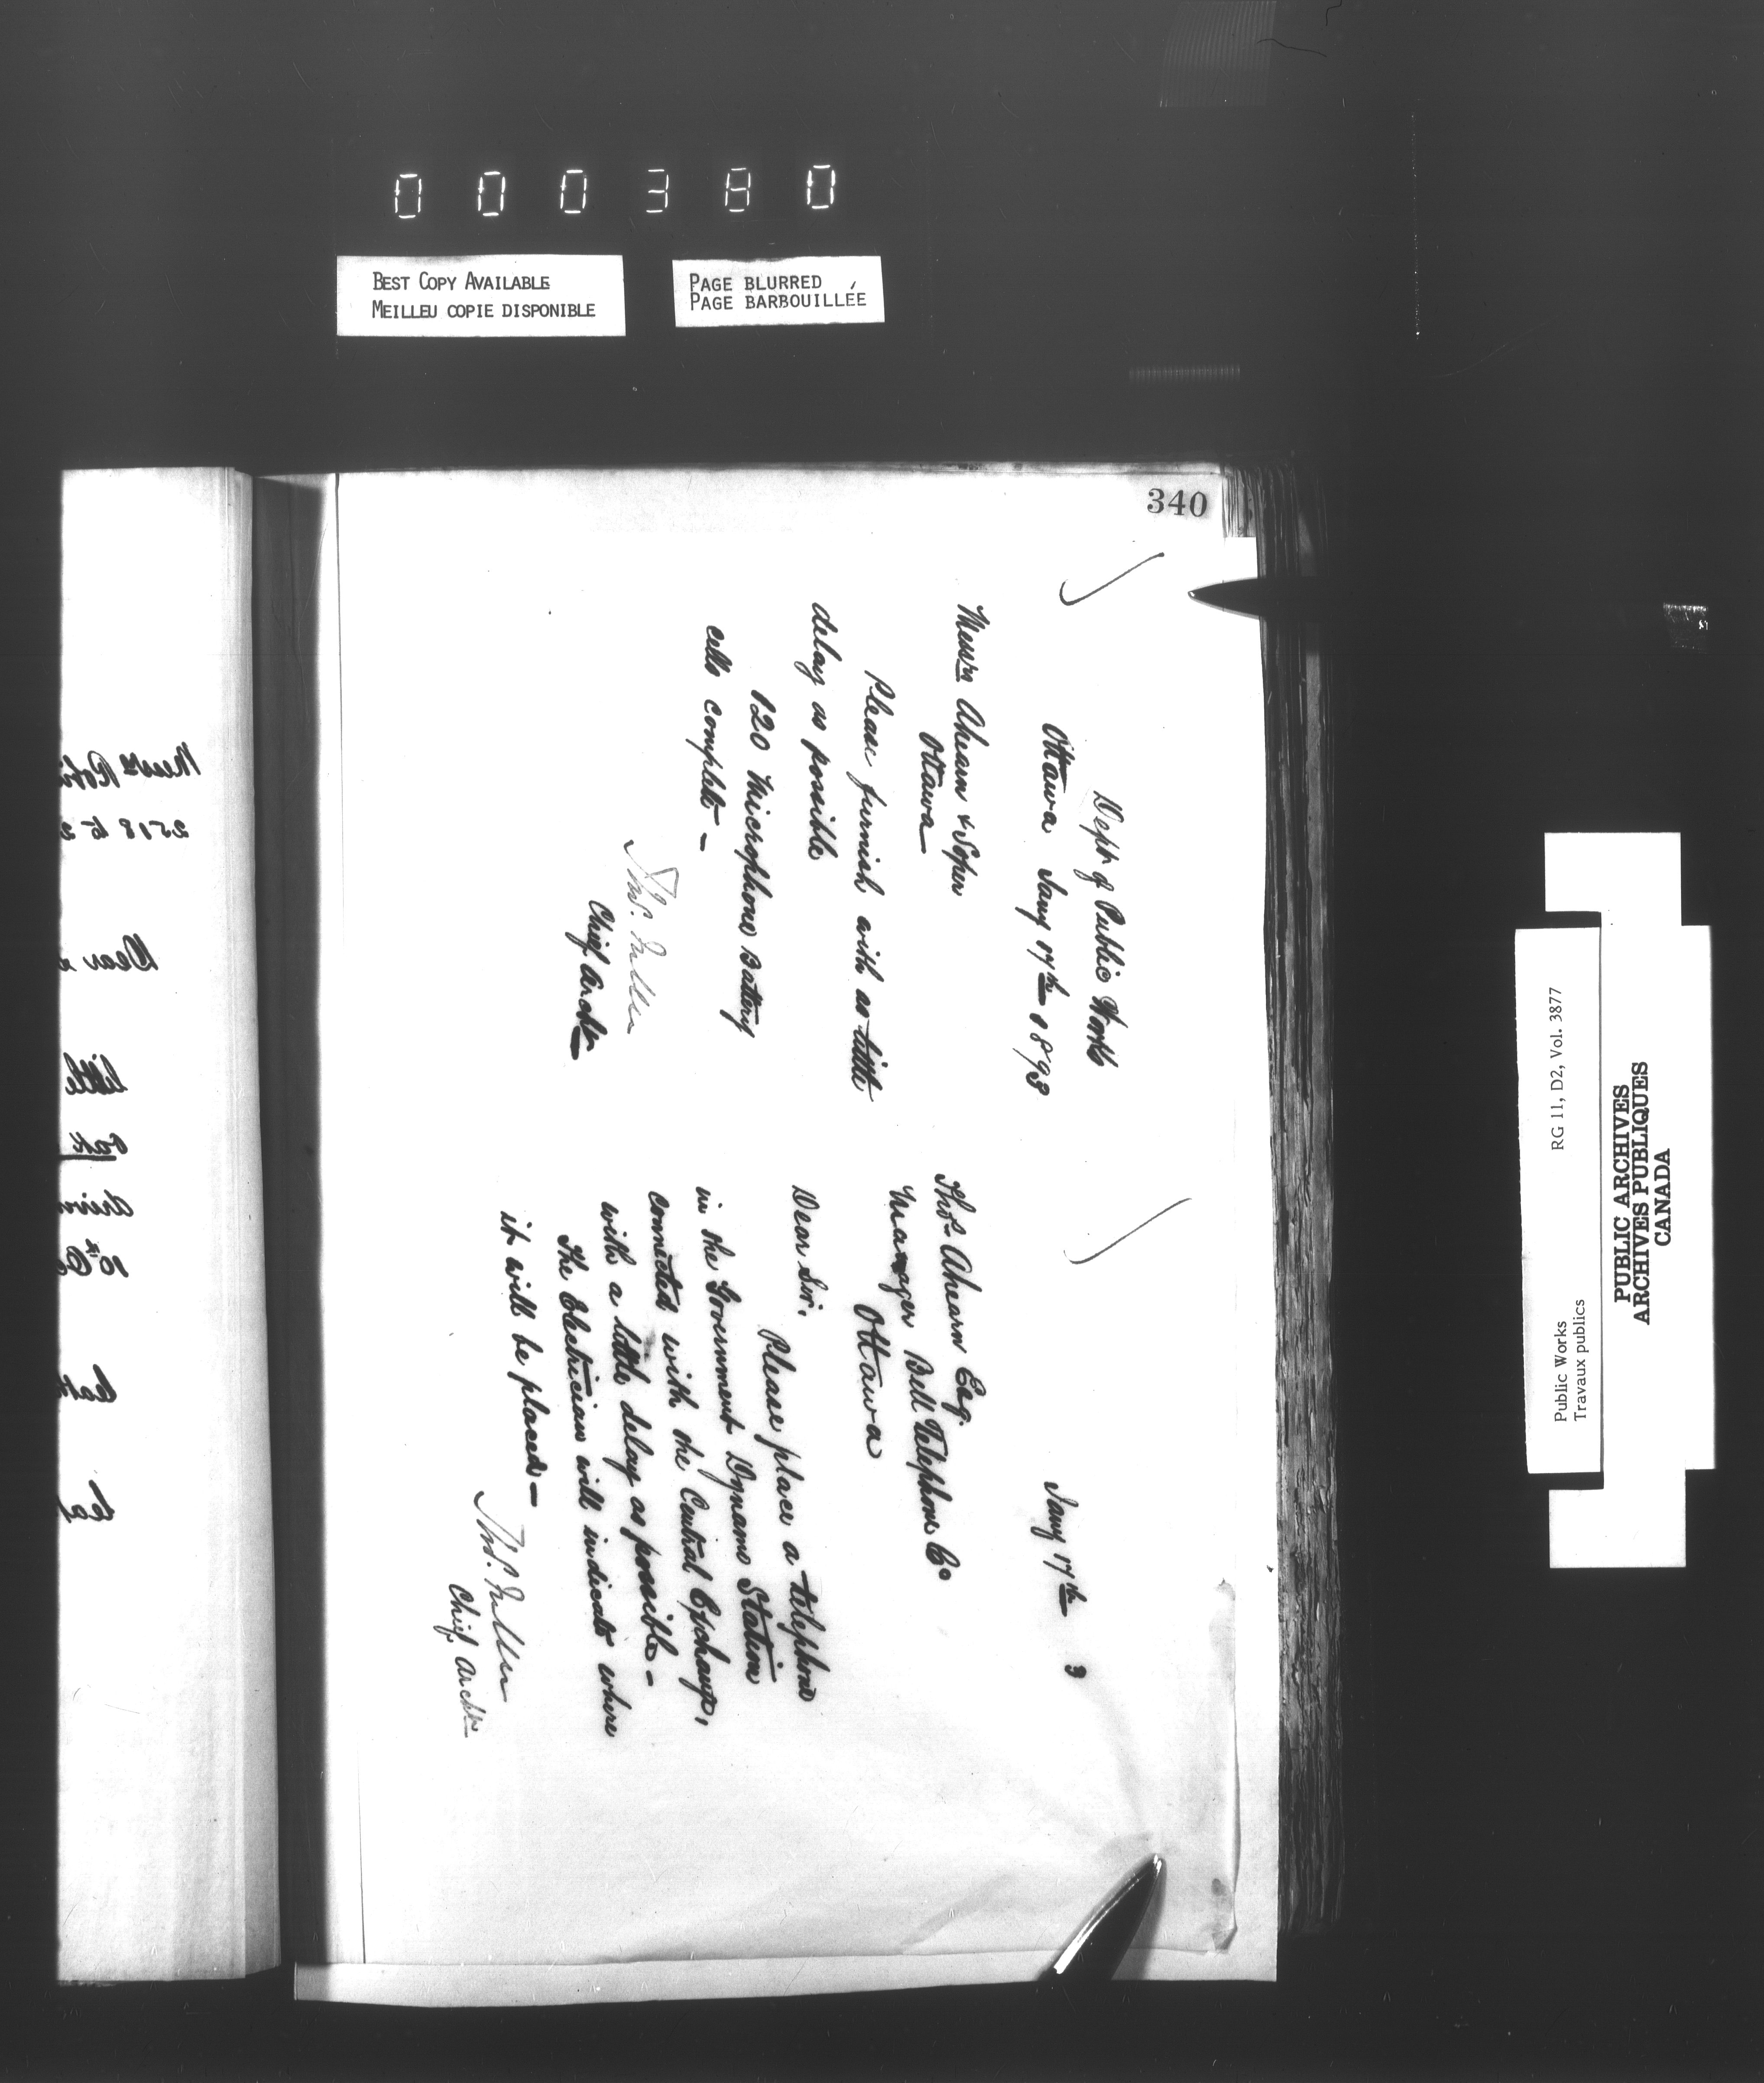 000380
BEST COPY AVAILABLE
MEILLEU COPIE DISPONIBLE
PAGE BLURRED
PAGE BARBOUILLÉE
340
Dept of Public Works
Ottawa Jany 17th 1893
Messrs Ahearn & Soper
Ottawa
Please furnish with as little
delay as possible
120 Microphone Battery
cells complete —
Thos. Fuller
Chief Archt
Jany 17th 3
Thos Ahearn Esq.
Manager Bell Telephone Co
Ottawa
Dear Sir,
Please place a telephone
in the Government Dynamo Station
connected with the Central Exchange,
with a little delay as possible —
The Electrician will indicate where
it will be placed —
Thos. Fuller
Chief Archt
Messrs
2518
Dear
little
10
Public Works
Travaux publics
RG 11, D2, Vol. 3877
PUBLIC ARCHIVES
ARCHIVES PUBLIQUES
CANADA